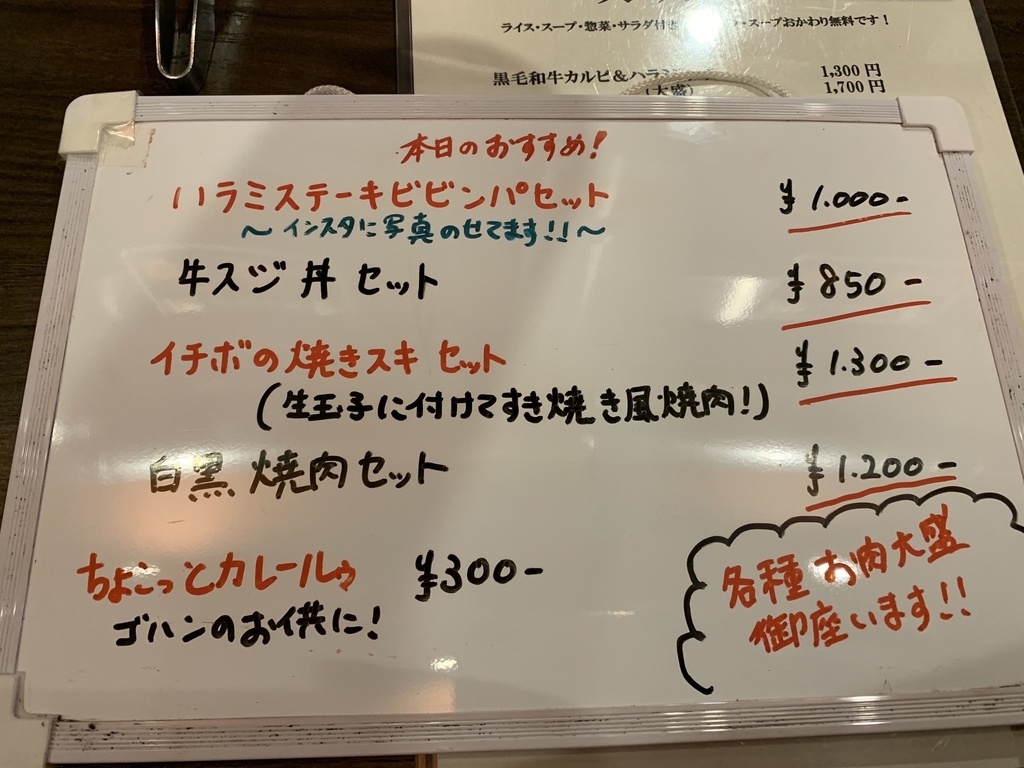 ライス・スープ・惣菜・サラダ付き
スープおかわり無料です！
黒毛和牛カルビ&ハラミ 1,300円
(大盛) 1,700円
本日のおすすめ!
ハラミステーキビビンパセット ¥1.000-
〜インスタに写真のせてます!!〜
牛スジ丼セット ¥850-
イチボの焼きスキセット ¥1.300-
(生玉子に付けてすき焼き風焼肉!)
白黒焼肉セット ¥1.200-
ちょこっとカレールゥ ¥300-
ゴハンのお供に!
各種お肉大盛
御座います!!